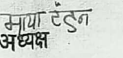 माया टंडन
अध्यक्ष